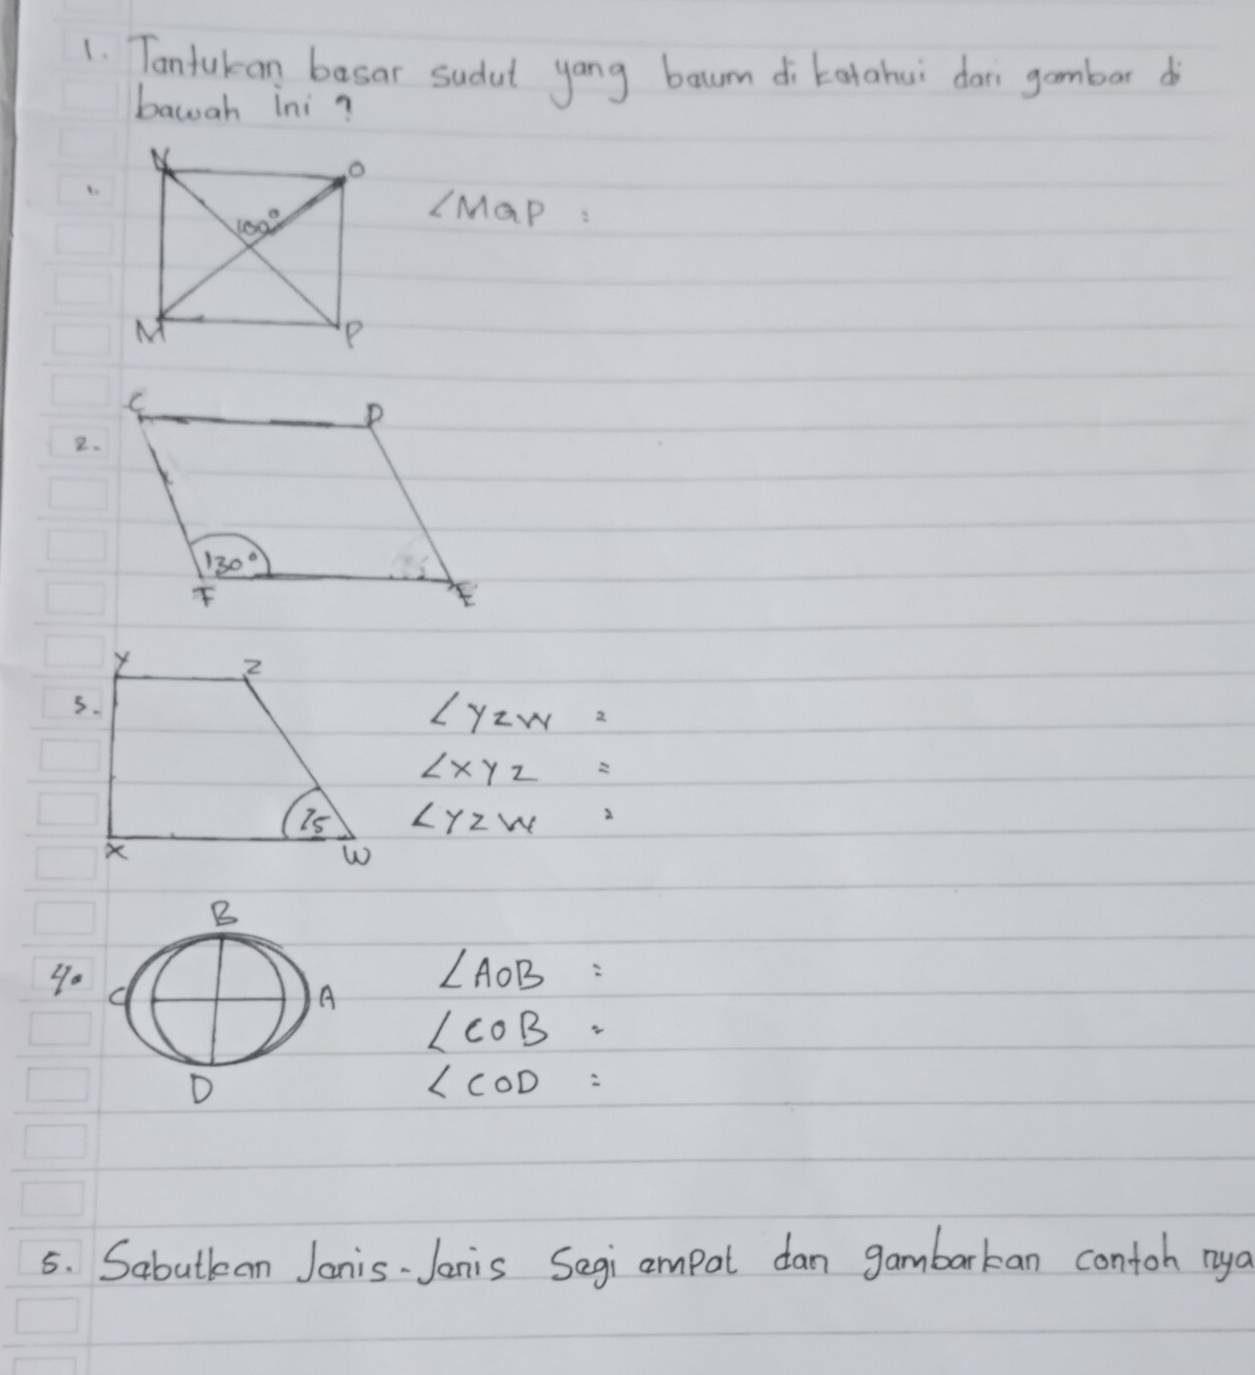 1. Tantukan basar sudut yang baum di katahui dari gambar di
bawah ini ?
1.
N
O
100°
∠MQP :
M
P
2.
C
D
130°
F
E
3.
Y
Z
75
X
W
∠YZW =
∠XYZ =
∠YZW =
4.
B
C
A
D
∠AOB :
∠COB =
∠COD :
5. Sabutkan Janis-Janis Sagi ampat dan gambarkan contoh nya